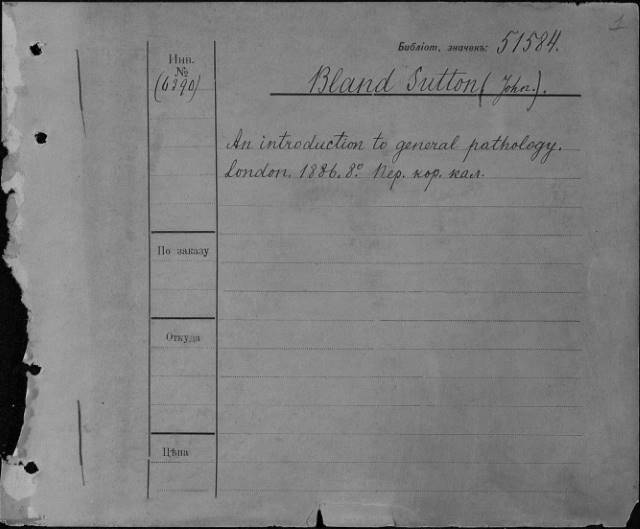 1
Библіот. значекъ: 51584.
Инв.
№
(6390)
Bland Sutton (John.).
An introduction to general pathology.
London. 1886. 8º Пер. кор. кал.
По заказу
Откуда
Цѣна